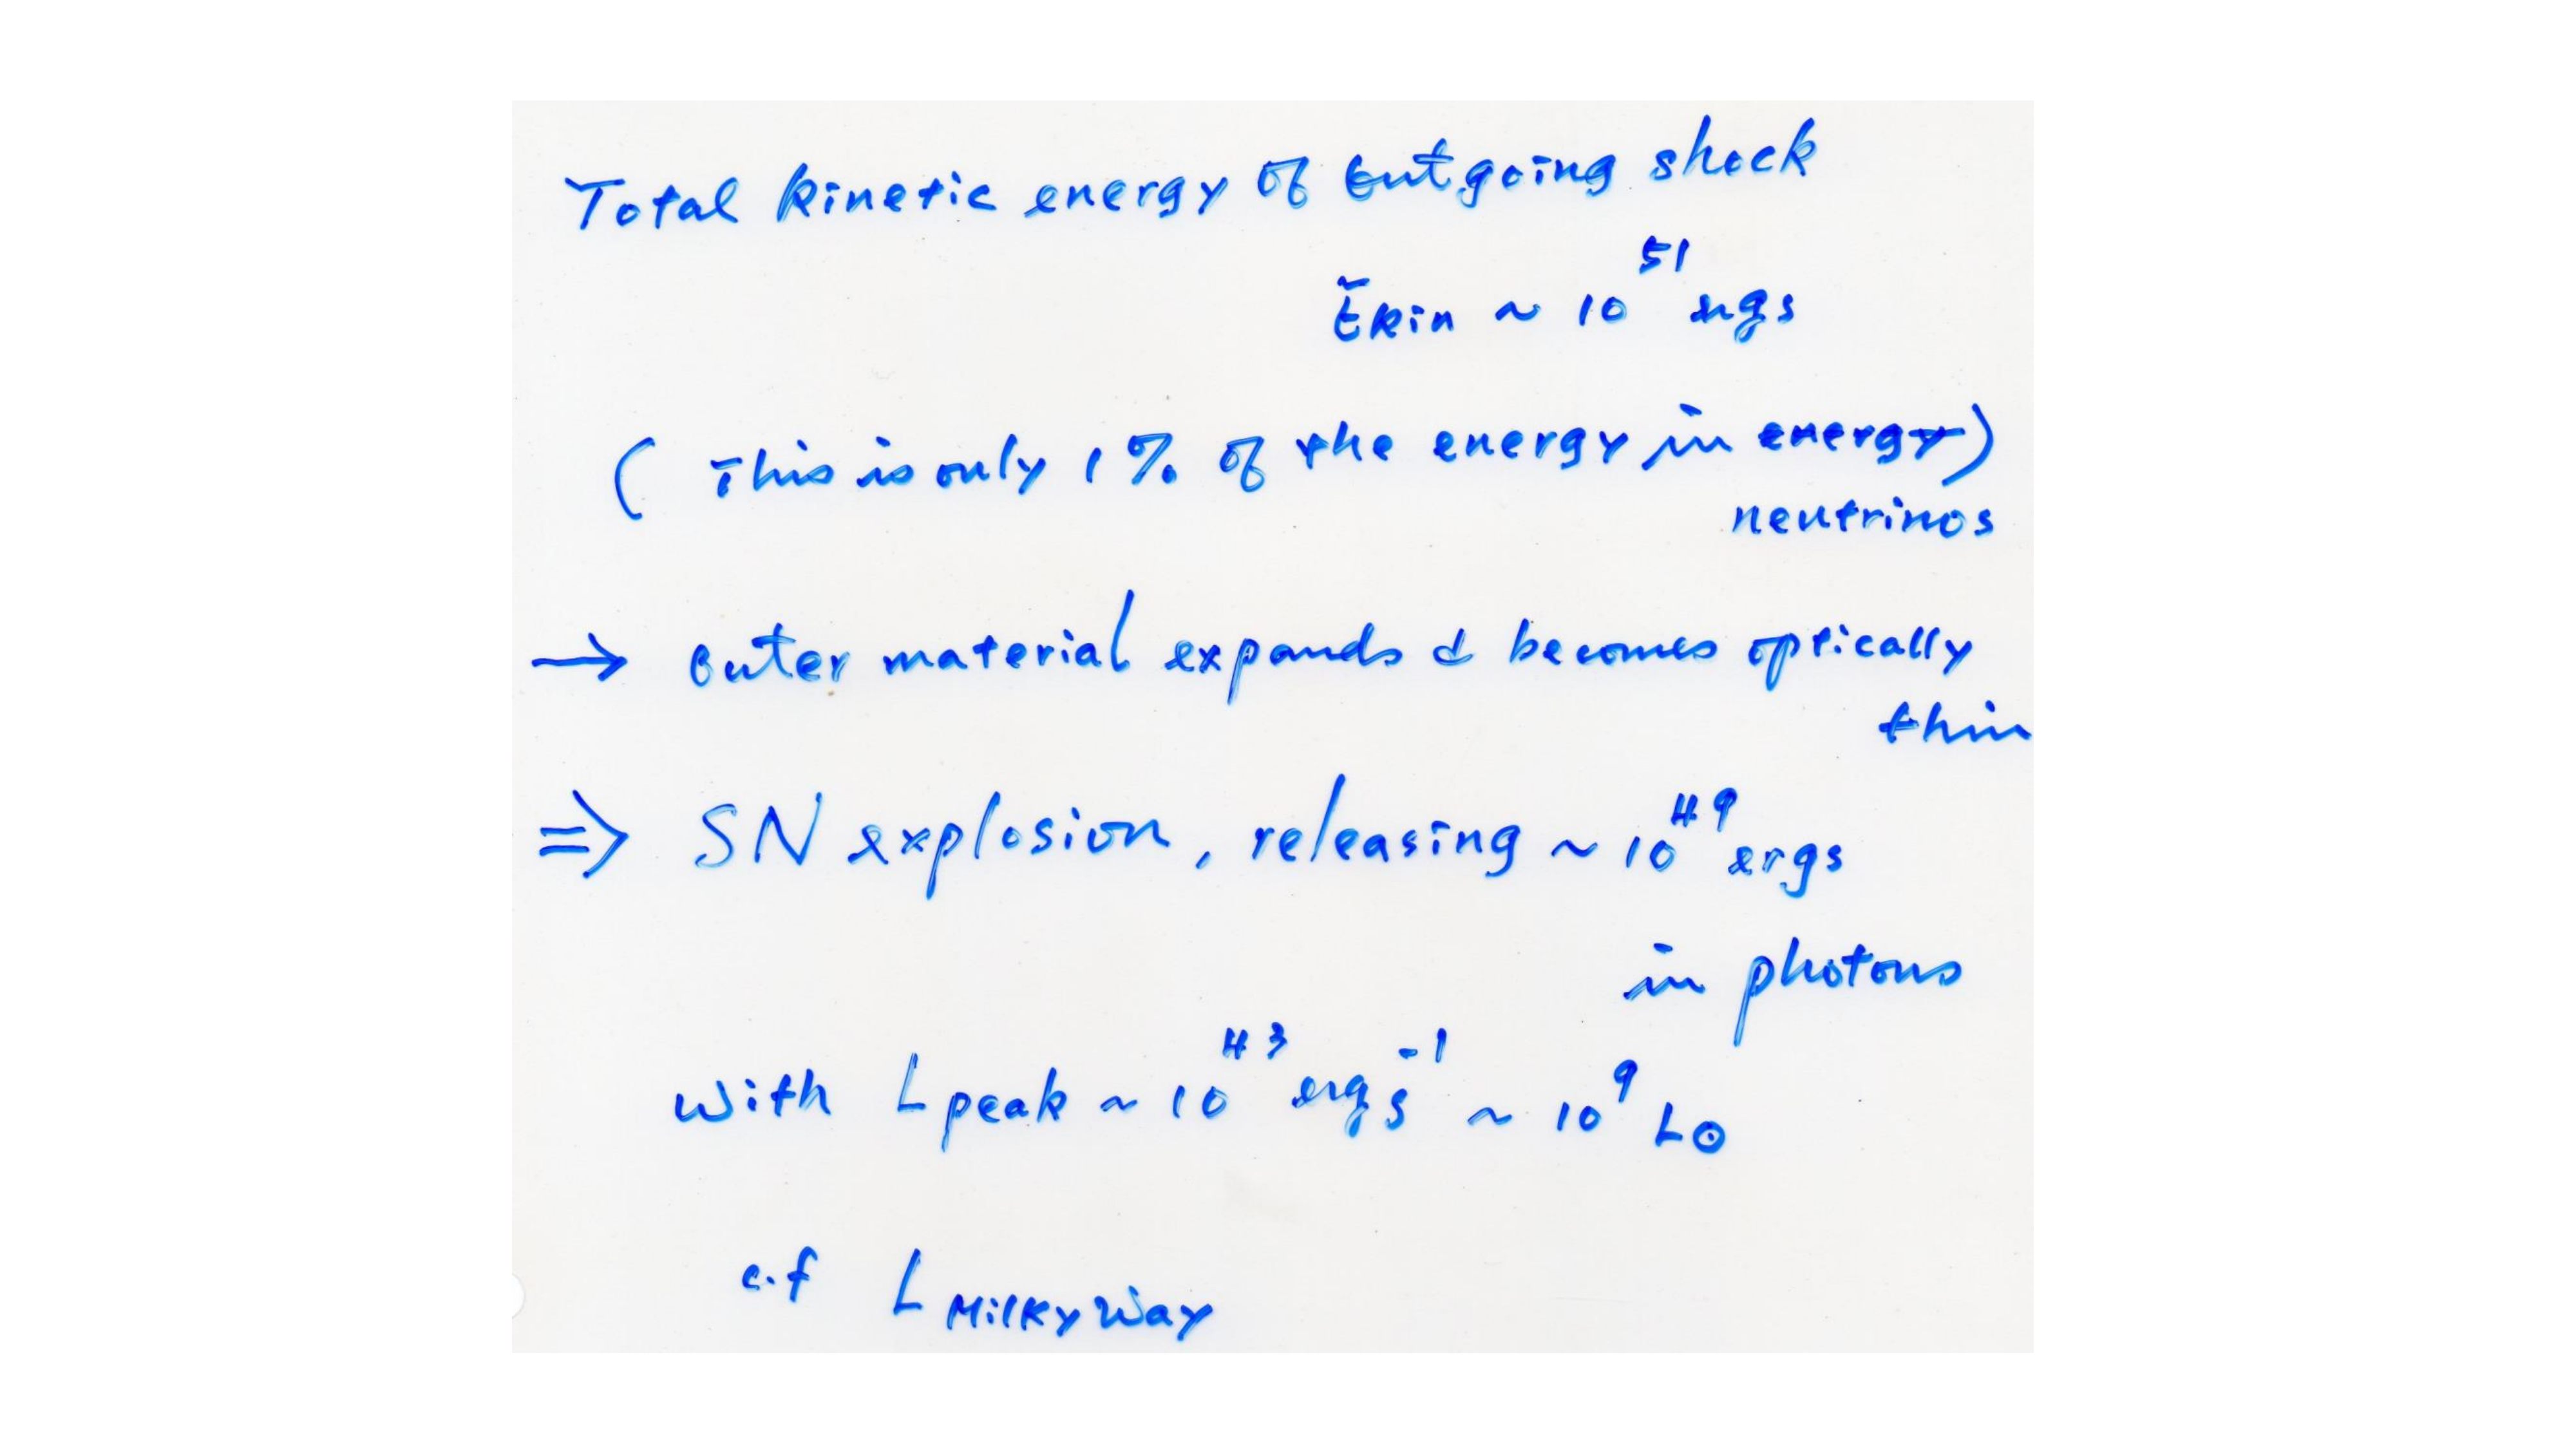 Total kinetic energy of outgoing shock
Ekin ~ 10^51 ergs
( This is only 1% of the energy in energy)
neutrinos
→ outer material expands & becomes optically
thin
⇒ SN explosion, releasing ~ 10^49 ergs
in photons
with Lpeak ~ 10^43 erg s^-1 ~ 10^9 L⊙
c.f L Milky Way